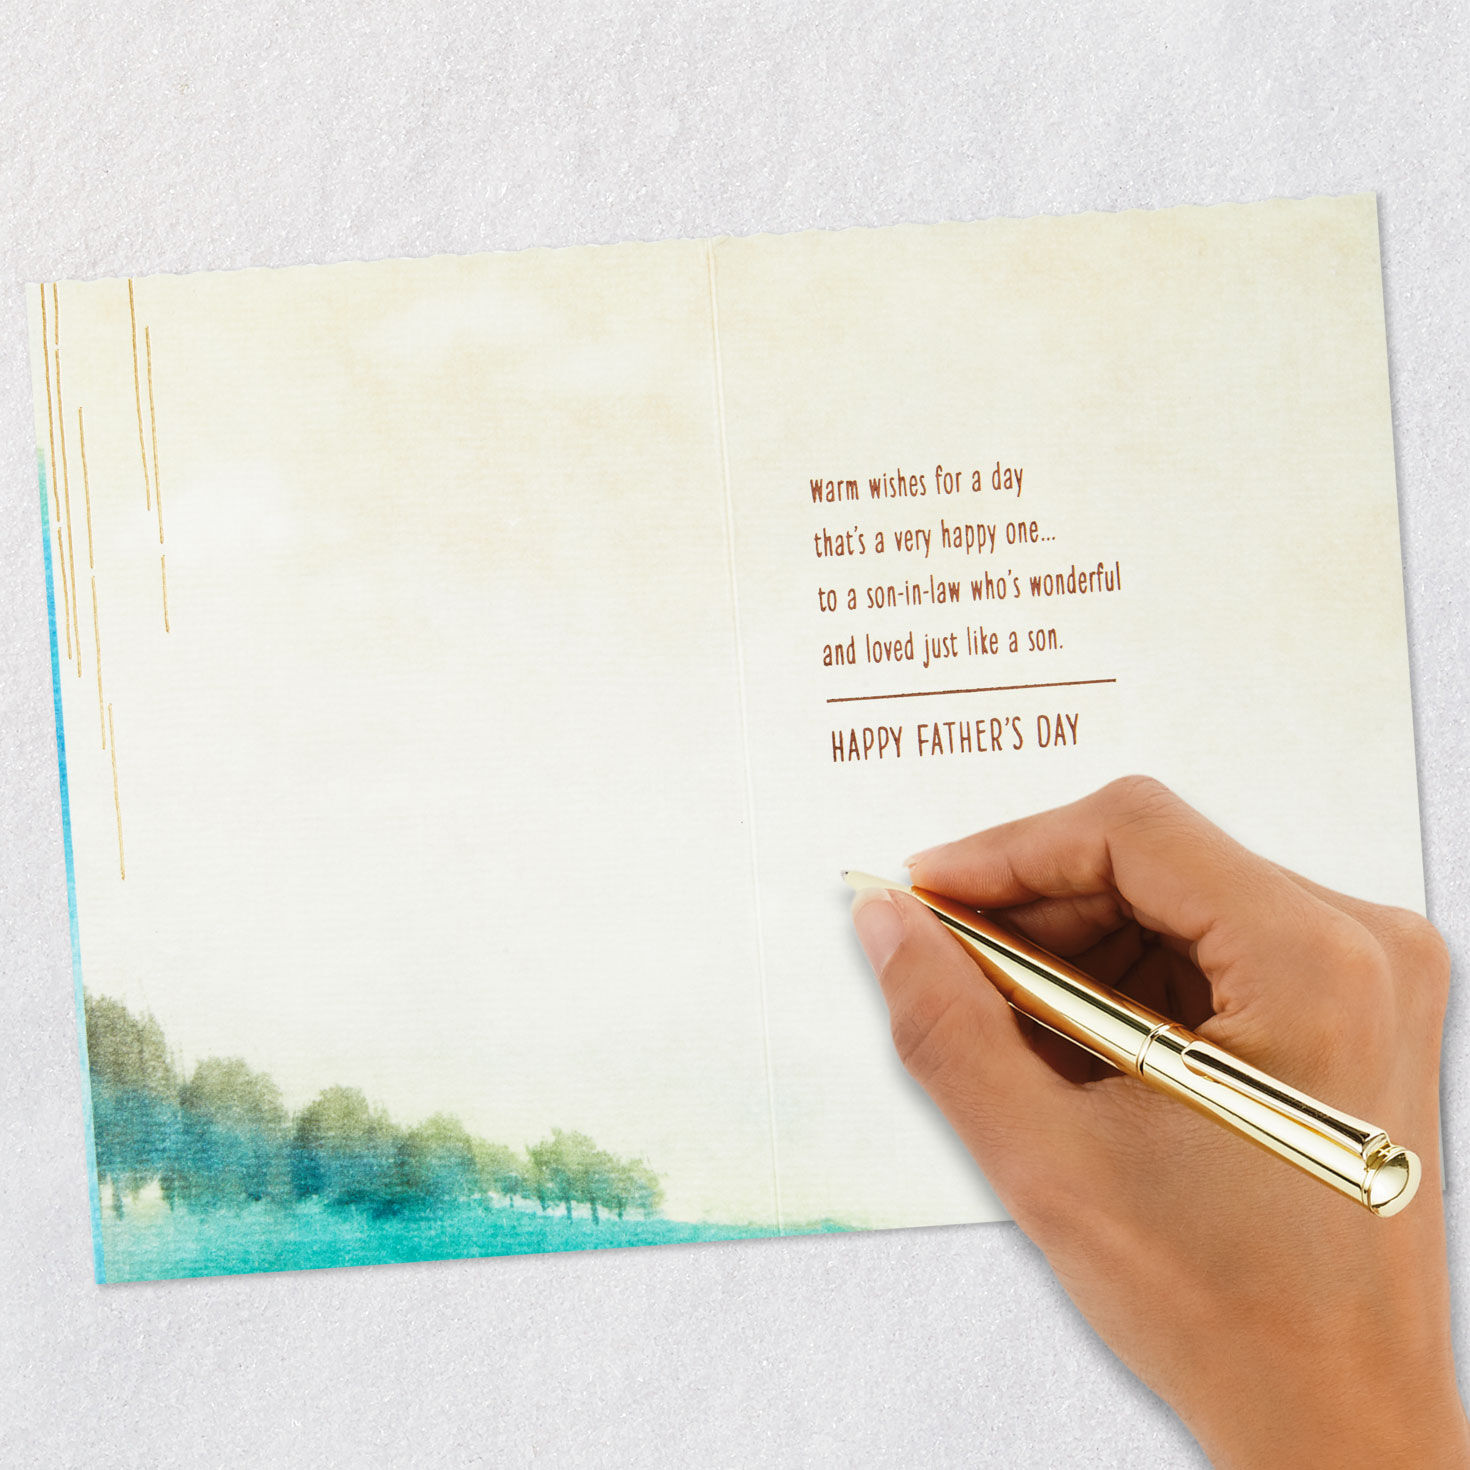 Warm wishes for a day
that's a very happy one...
to a son-in-law who's wonderful
and loved just like a son.
HAPPY FATHER'S DAY